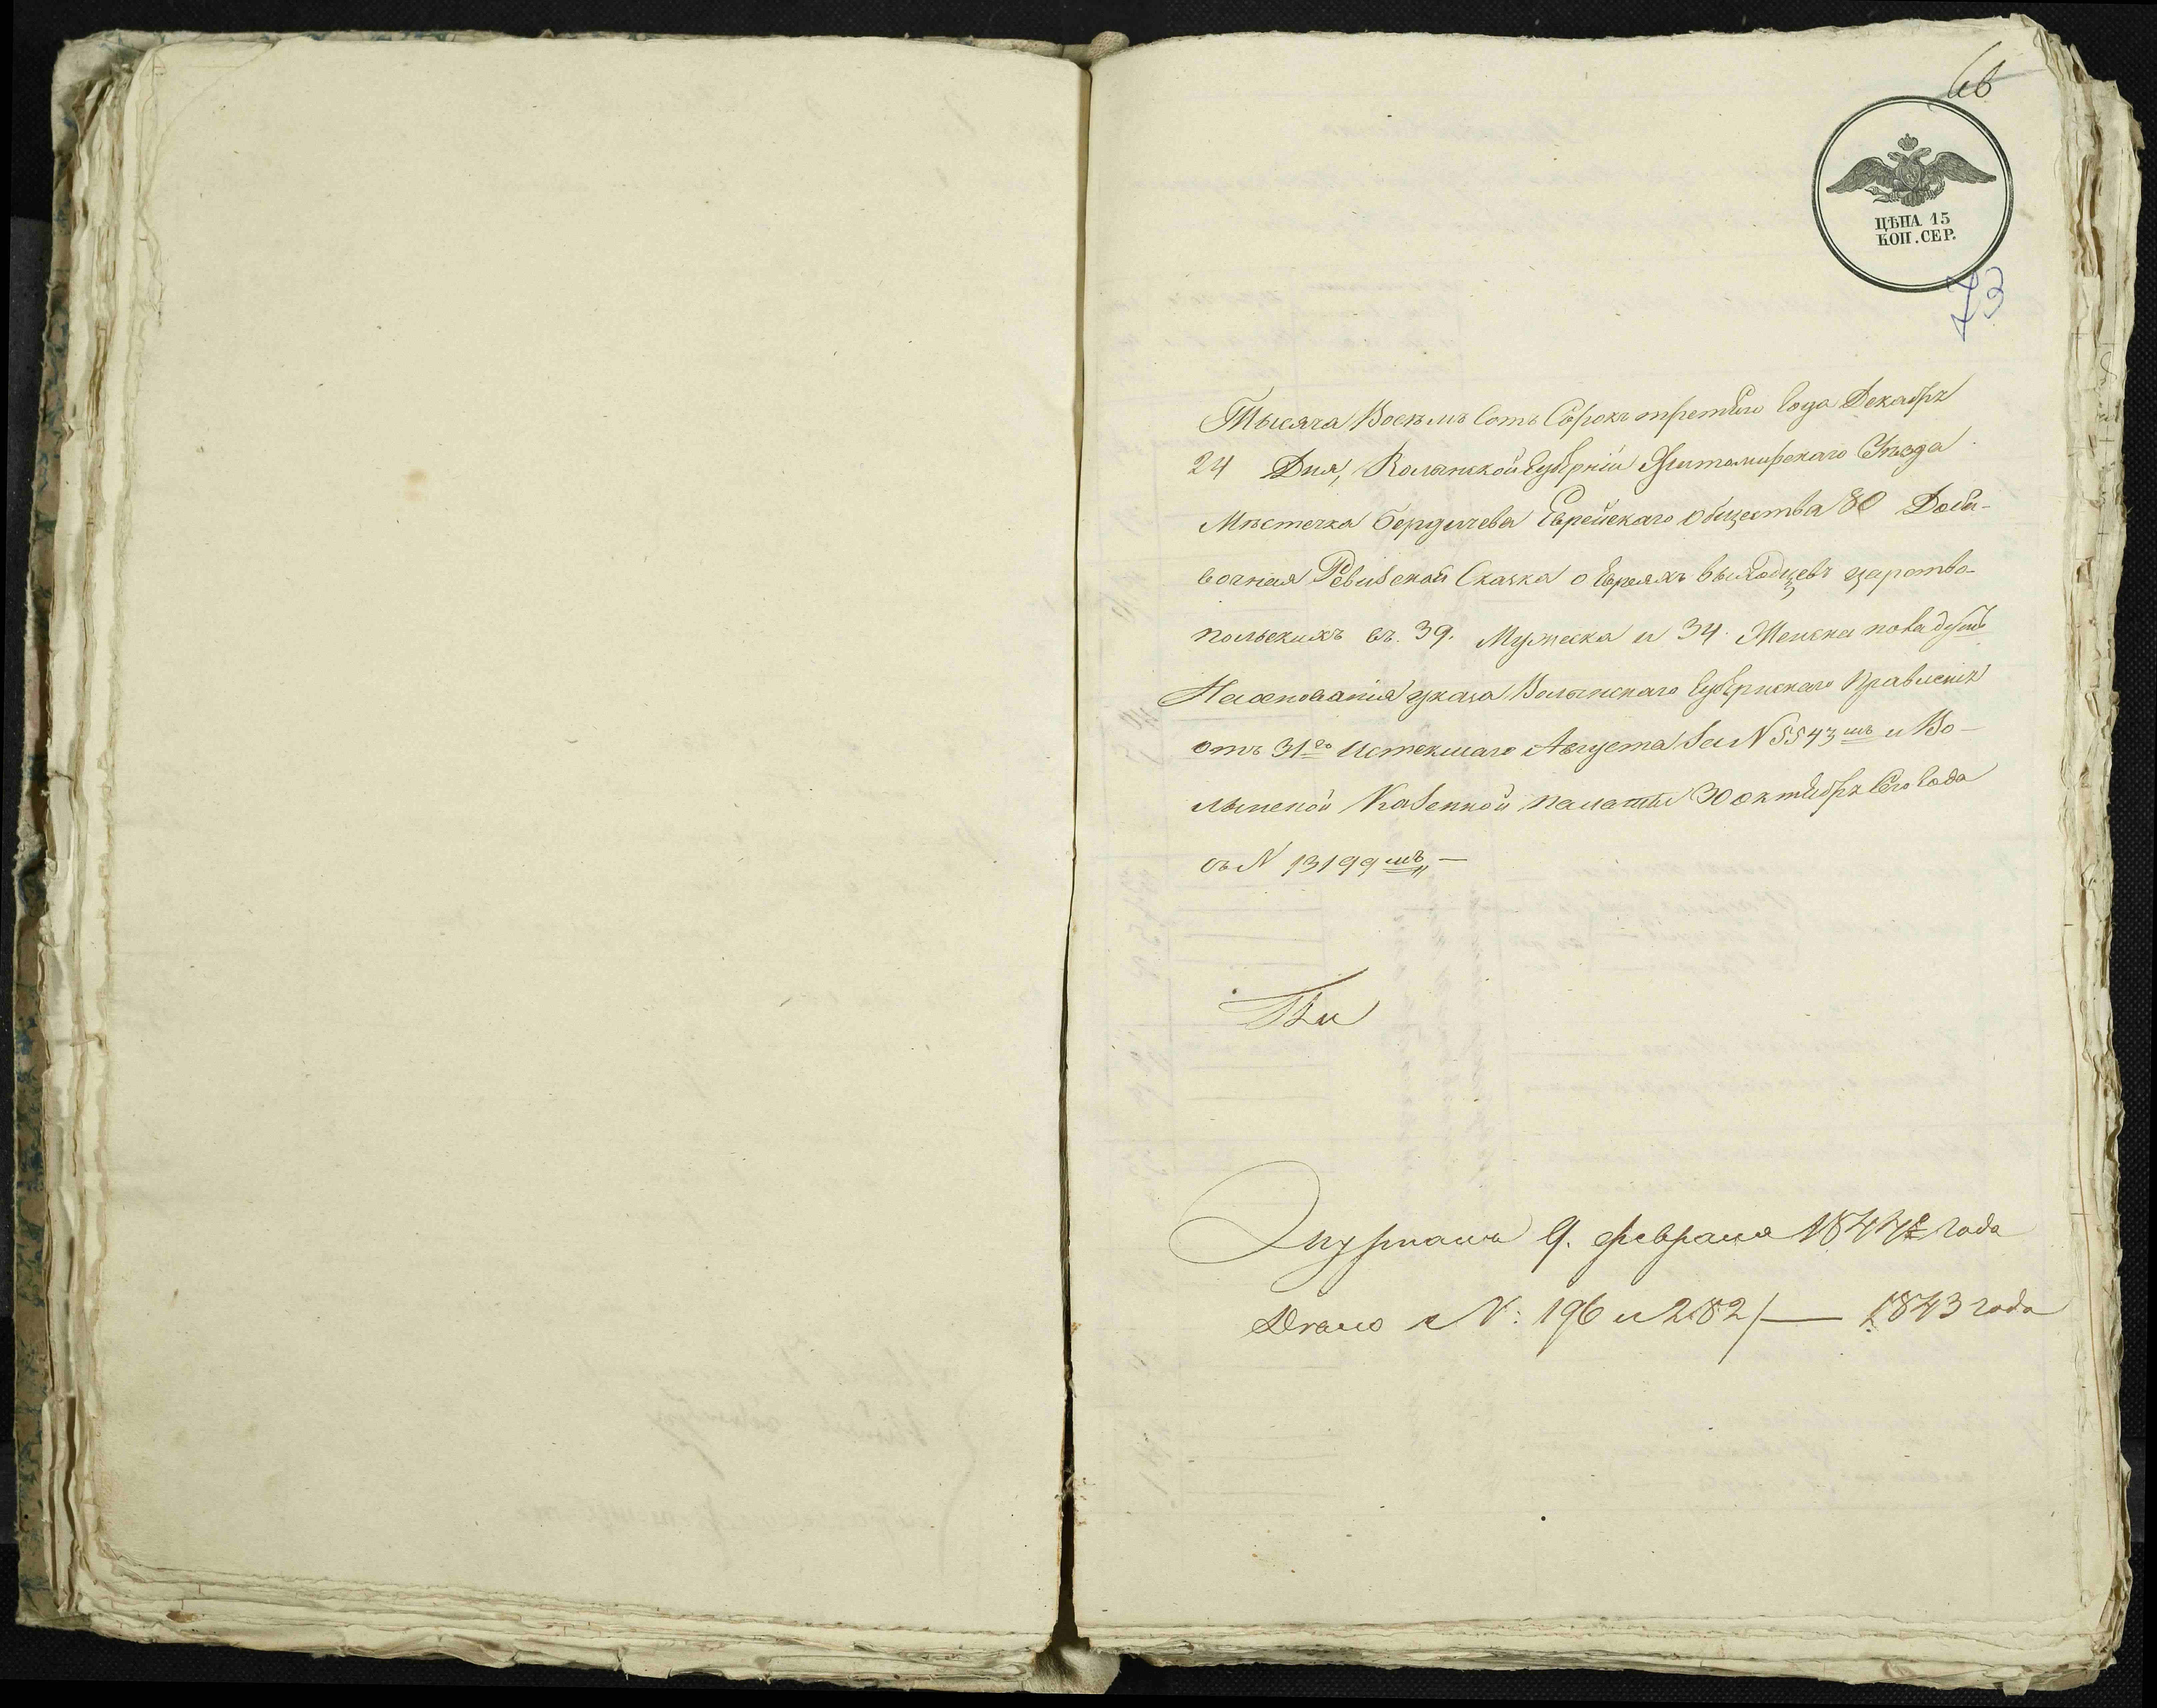 66
ЦѢНА 15
КОП. СЕР.
73
Тысяча Восемь Сотъ Сорокъ третьего Года Декабря
24 Дня, Волынской Губерніи Житомирскаго Уѣзда
Мѣстечка Бердичева Еврейскаго Общества 80 Доба-
вочная Ревизская Сказка о Евреяхъ выходцевъ царства
польскихъ въ. 39. Мужеска и 34. Женска пола душъ
На основанія указа Волынскаго Губернскаго Правленія
отъ 31го истекшаго Августа За N 5543мъ и Во-
лынской Казенной палаты 30 октября Сего Года
съ N 13199мъ —
9. февраля 1844 года
Дѣло N: 196 и 282 / — 1843 года